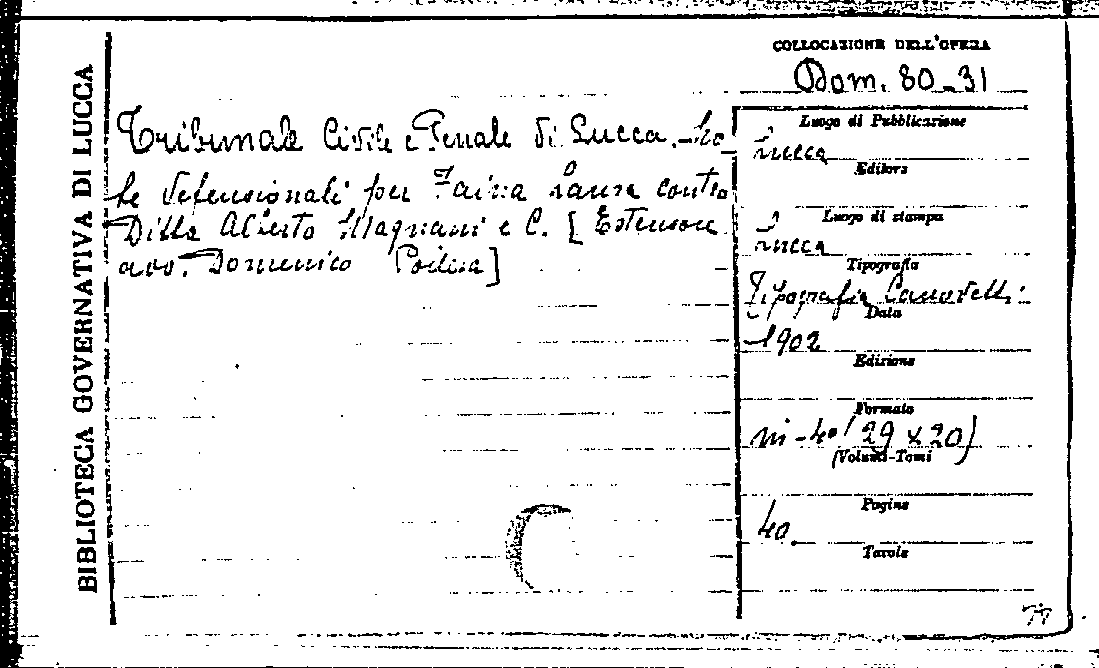 BIBLIOTECA GOVERNATIVA DI LUCCA
COLLOCAZIONE DELL'OPERA
Dom. 80-31
Tribunale Civile e Penale di Lucca. No
te defensionali per Faina Laura contro
Ditta Alberto Magnani e C. [Estensore
avv. Domenico
Luogo di Pubblicazione
Lucca
Editore
Luogo di stampa
Lucca
Tipografia
Tipografia Canovetti
Data
1902
Edizione
Formato
in-4o (29 x 20)
(Volumi-Tomi
Pagine
40.
Tavole